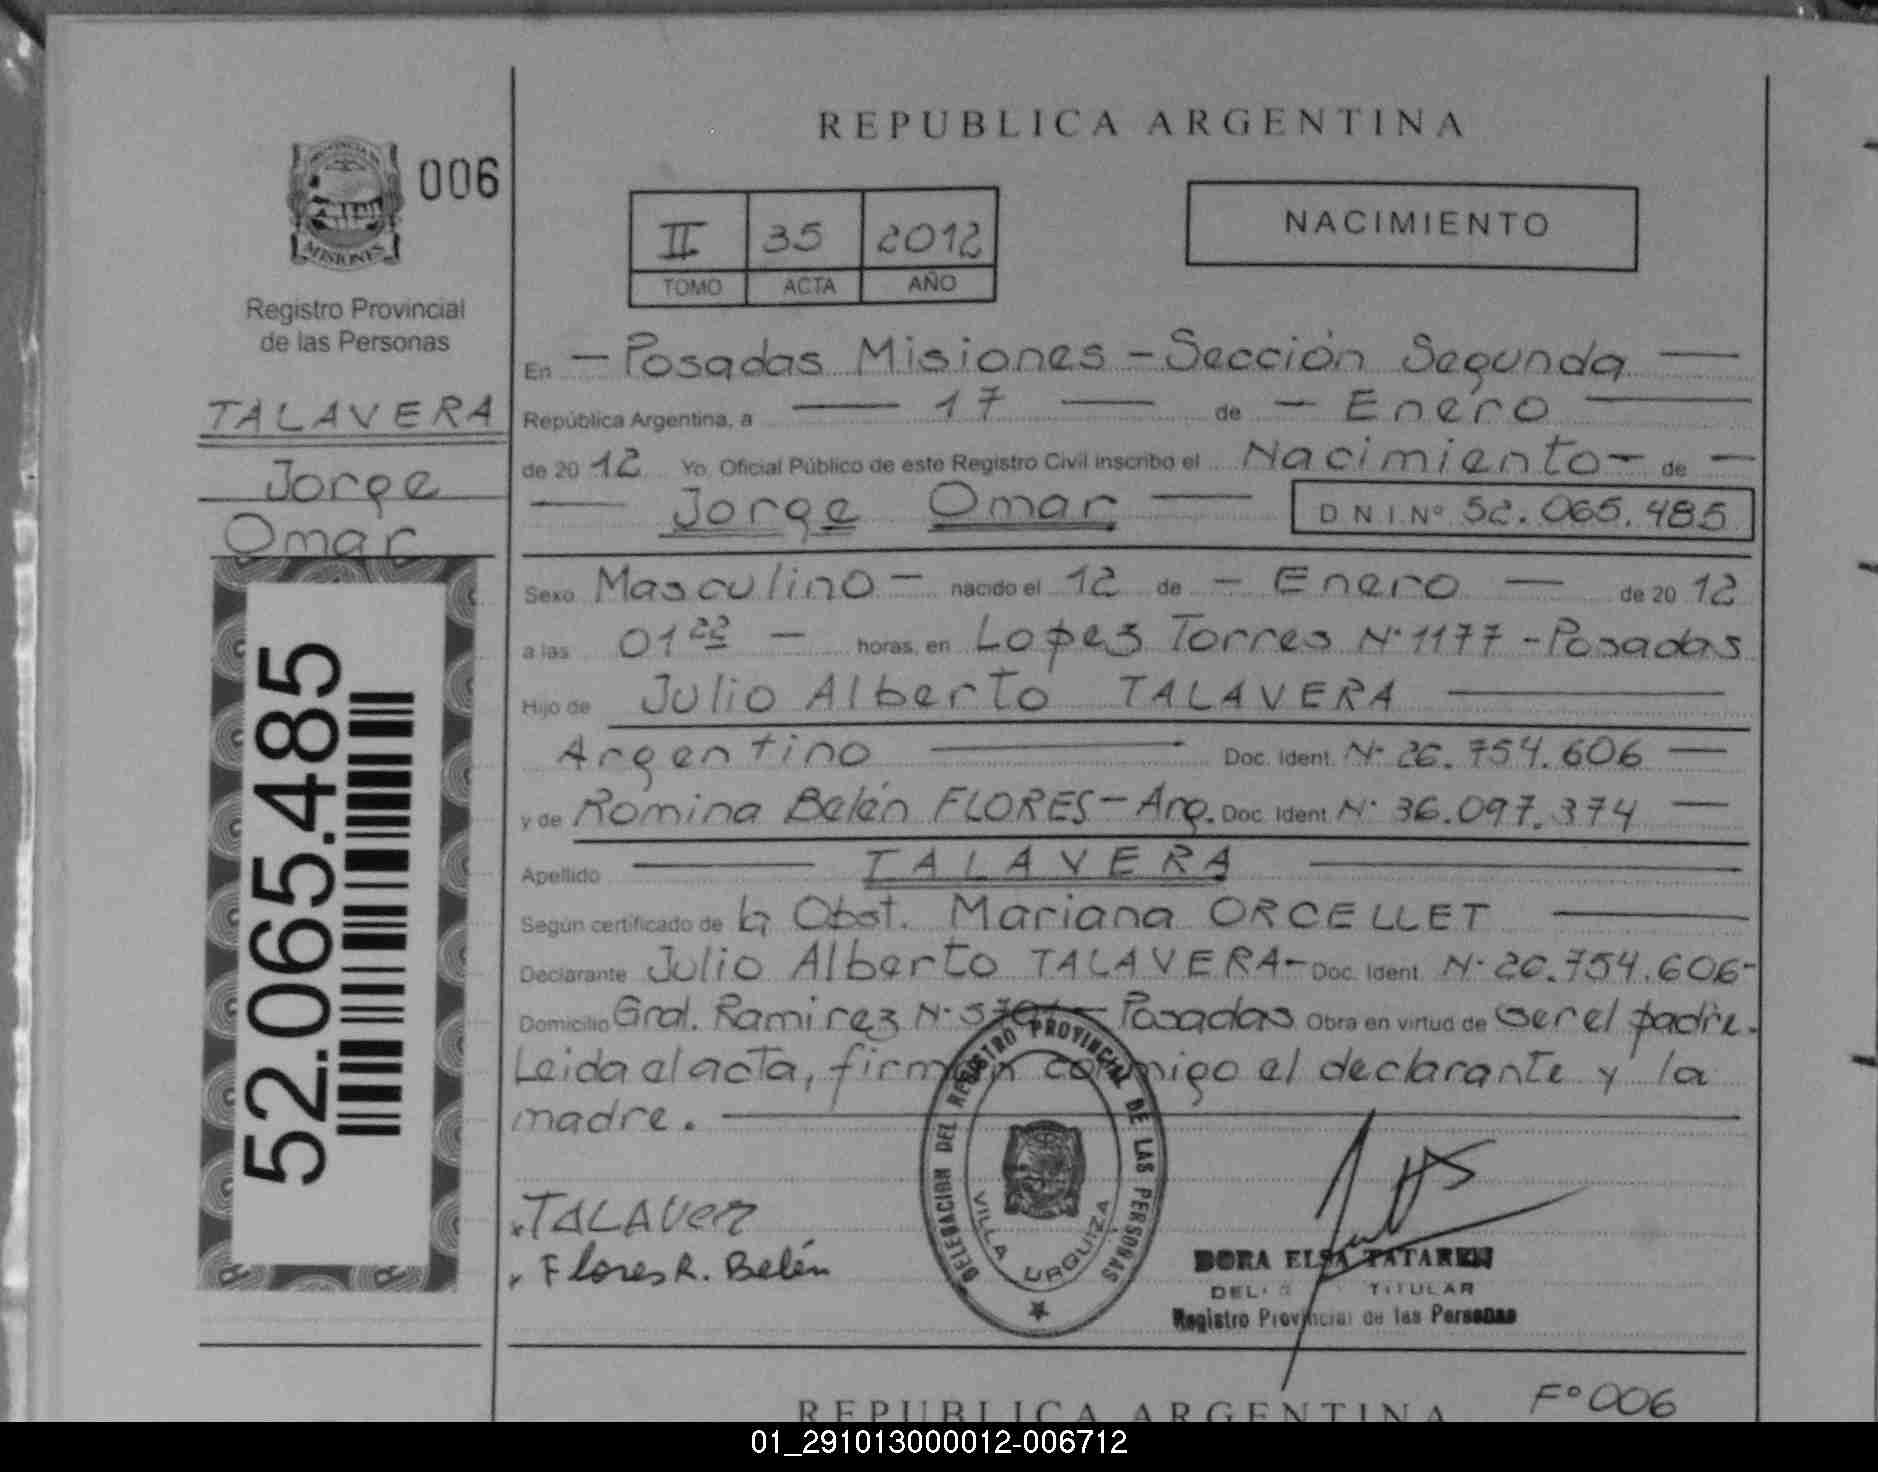 REPUBLICA ARGENTINA
PROVINCIA DE
MISIONES
006
Registro Provincial
de las Personas
TALAVERA
Jorge
Omar
52.065.485
II 35 2012
TOMO ACTA AÑO
NACIMIENTO
En - Posadas Misiones - Sección Segunda —
República Argentina, a — 17 — de - Enero —
de 20 12 Yo, Oficial Público de este Registro Civil inscribo el Nacimiento - de -
— Jorge Omar — D N I Nº 52.065.485
Sexo Masculino - nacido el 12 de - Enero — de 20 12
a las 01 22 - horas, en Lopez Torres Nº 1177 - Posadas
Hijo de Julio Alberto TALAVERA —
Argentino — Doc. Ident. Nº 26.754.606 —
y de Romina Belén FLORES - Arg. Doc. Ident. Nº 36.097.374 —
Apellido — TALAVERA —
Según certificado de la Obst. Mariana ORCELLET —
Declarante Julio Alberto TALAVERA - Doc. Ident. Nº 26.754.606 -
Domicilio Gral. Ramirez Nº - Posadas Obra en virtud de ser el padre.
Leida el acta, firman conmigo el declarante y la
madre. —
DELEGACION DEL REGISTRO PROVINCIAL DE LAS PERSONAS
VILLA URQUIZA
TALAVER
Flores R. Belén
DORA ELSA TATAREN
TITULAR
Registro Provincial de las Personas
Fº 006
REPUBLICA ARGENTINA
01_291013000012-006712